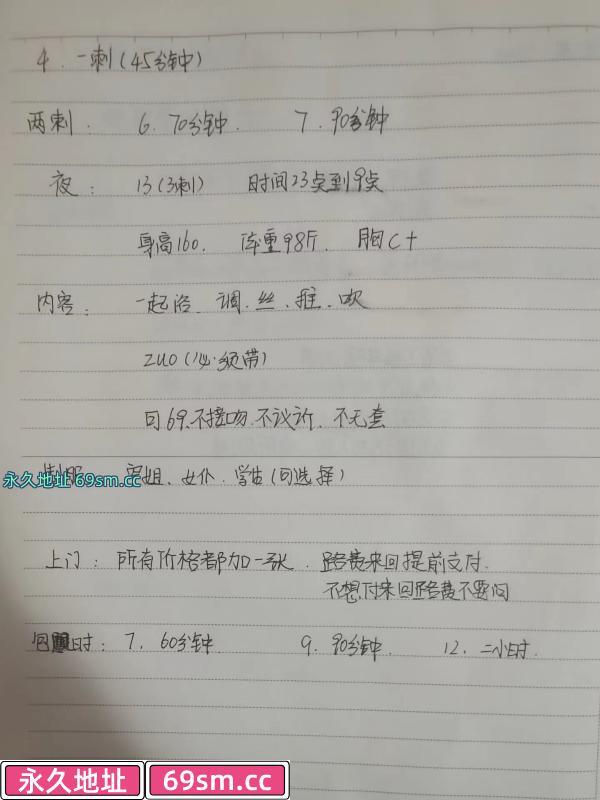 4. 一刺(45分钟)
两刺: 6. 70分钟. 7. 90分钟
夜: 13(3刺) 时间23点到9点
身高160. 体重98斤. 胸C+
内容: 一起浴、调.丝、推.吹
zuo(必须带)
可69.不接吻.不议价.不无套
永久地址 69sm.cc
空姐、女仆.学生(可选择)
上门: 所有价格都加一张. 路费来回提前支付.
不想付来回路费不要问
时: 7. 60分钟 9. 90分钟. 12. 二小时.
永久地址 69sm.cc